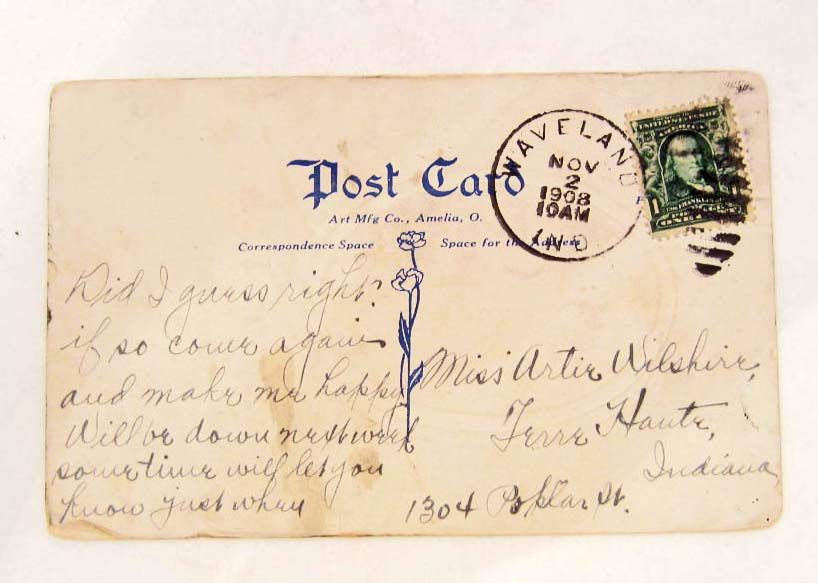 Post Card
Art Mfg Co., Amelia, O.
Correspondence Space
Space for the Address
WAVELAND
NOV
2
1908
10AM
IND
UNITED STATES OF
AMERICA
1
FRANKLIN
POSTAGE
ONE
Did I guess right?
if so come again
and make me happy
Will be down next week
sometime will let you
know just when
Miss Artie Wilshire,
Terre Haute,
Indiana
1304 Poplar St.